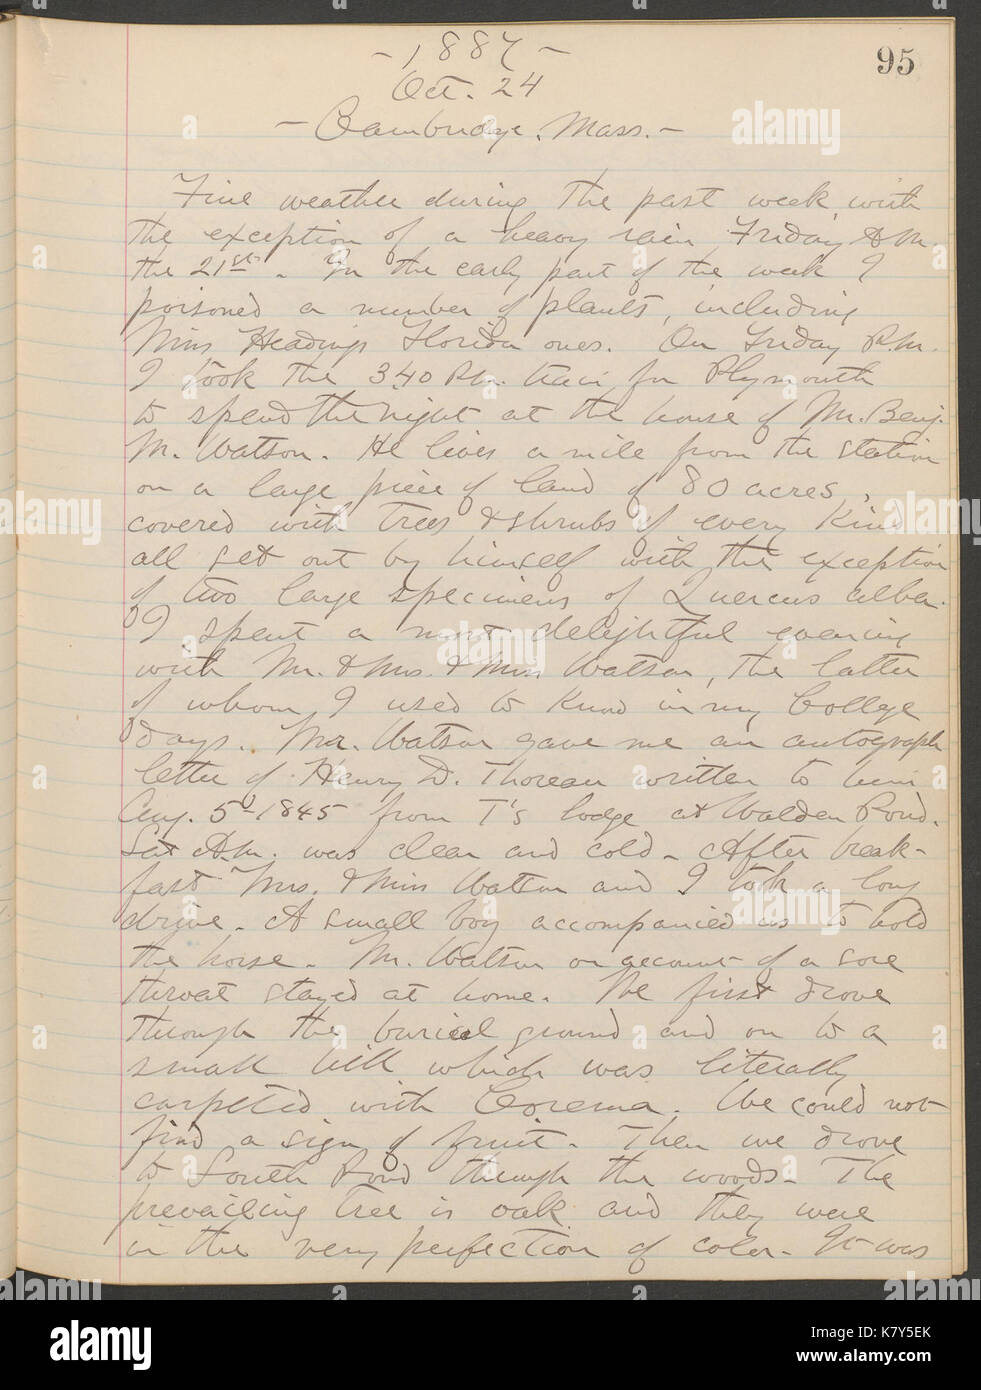 95
- 1887 -
Oct. 24
- Cambridge, Mass. -
Fine weather during the past week with
the exception of a heavy rain Friday A.M.
the 21st. In the early part of the week I
poisoned a number of plants, including
Miss Headings Florida ones. On Friday P.M.
I took the 3.40 P.M. train for Plymouth
to spend the night at the house of Mr. Benj.
M. Watson. He lives a mile from the station
on a large piece of land of 80 acres,
covered with trees & shrubs of every kind
all set out by himself with the exception
of two large specimens of Quercus alba.
I spent a most delightful evening
with Mr. & Mrs. & Miss Watson, the latter
of whom I used to know in my College
days. Mr. Watson gave me an autograph
letter of Henry D. Thoreau written to him
Aug. 5th 1845 from T's lodge at Walden Pond.
Sat A.M. was clear and cold - After break-
fast Mrs. & Miss Watson and I took a long
drive - A small boy accompanied us to hold
the horse - Mr. Watson on account of a sore
throat stayed at home. We first drove
through the burial ground and on to a
small hill which was literally
carpeted with Corema. We could not
find a sign of fruit - Then we drove
to South Pond through the woods - The
prevailing tree is oak and they were
in the very perfection of color - It was
alamy
alamy
alamy
alamy
www.alamy.com
Image ID: K7Y5EK